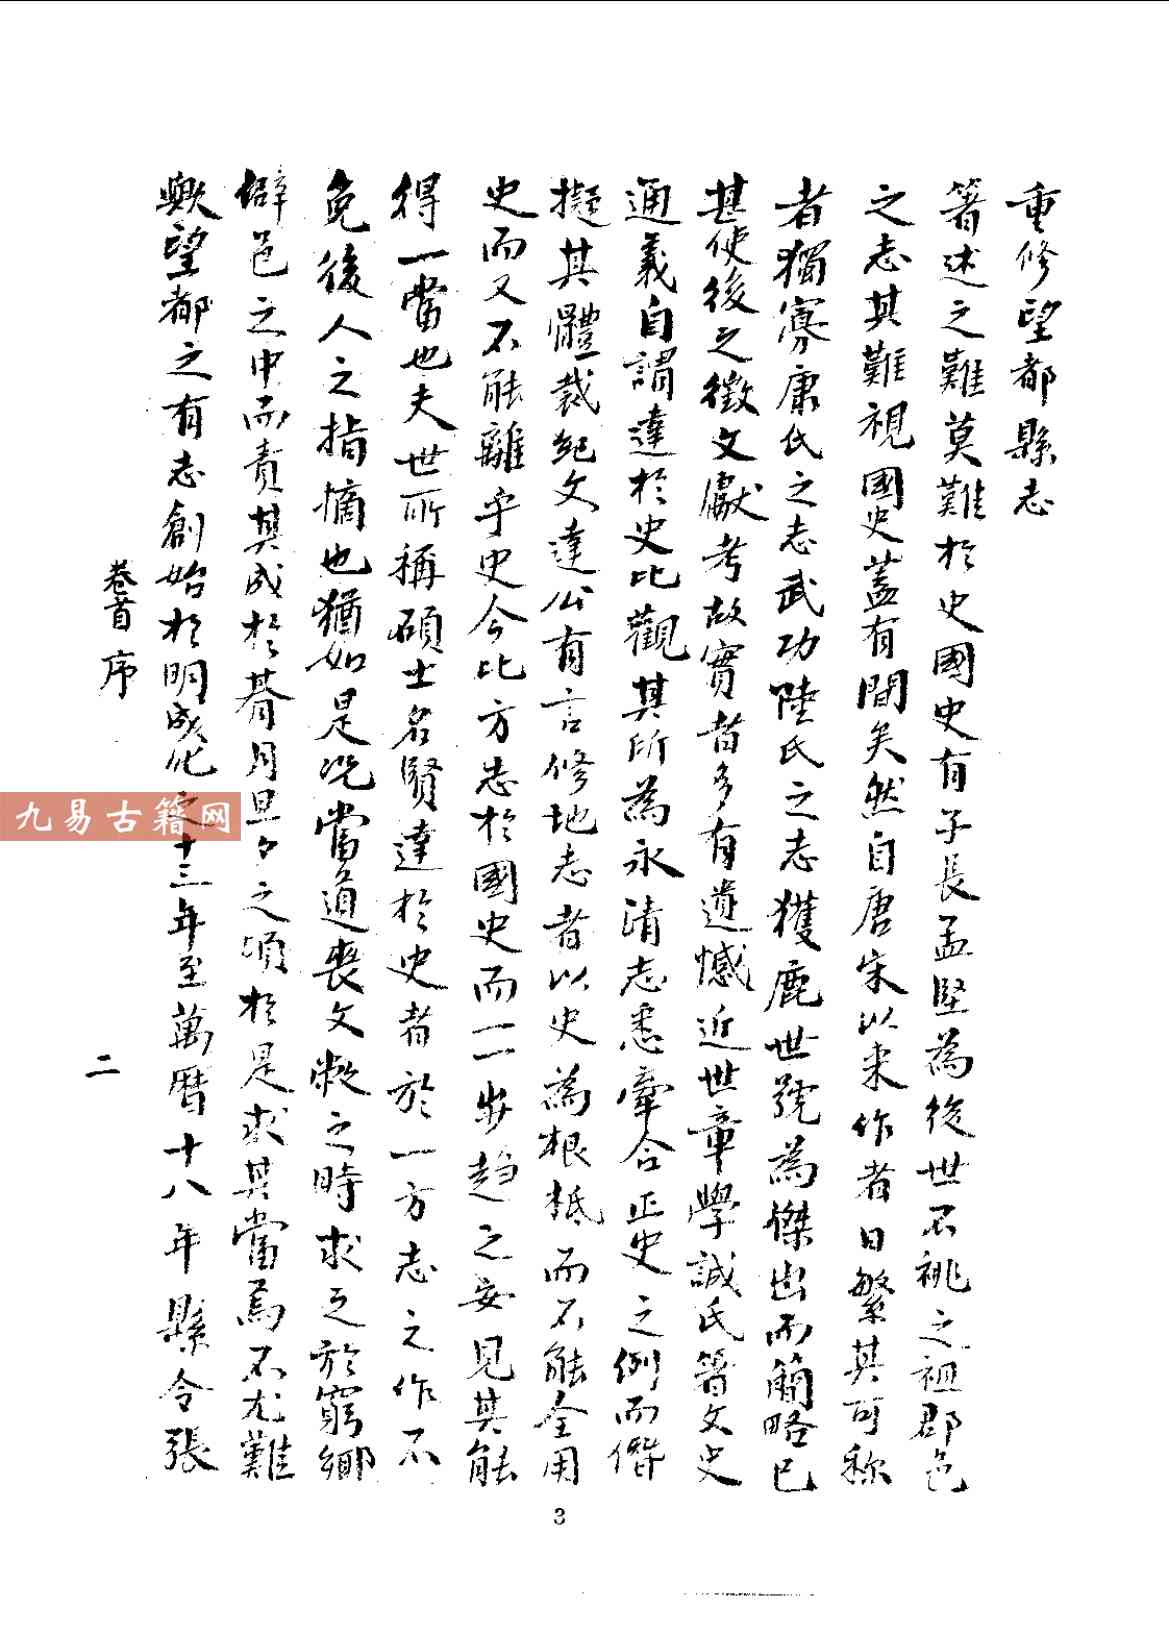 重修望都縣志
著述之難莫難於史國史有子長孟堅為後世不祧之祖郡邑
之志其難視國史蓋有間矣然自唐宋以來作者日繁其可称
者獨寡康氏之志武功陸氏之志獲鹿世號為傑出而簡略已
甚使後之徵文獻考故實者多有遺憾近世章學誠氏著文史
通義自謂達於史比觀其所為永清志悉牽合正史之例而僭
擬其體裁紀文達公有言修地志者以史為根柢而不能全用
史而又不能離乎史今比方志於國史而一一步趋之安見其能
得一當也夫世所稱碩士名賢達於史者於一方志之作不
免後人之指摘也猶如是况當道喪文敝之時求之於窮鄉
僻邑之中而責其成於朞月旦夕之頃於是求其當焉不尤難
歟望都之有志創始於明成化之十三年至萬曆十八年縣令張
卷首 序
二
3
九易古籍网